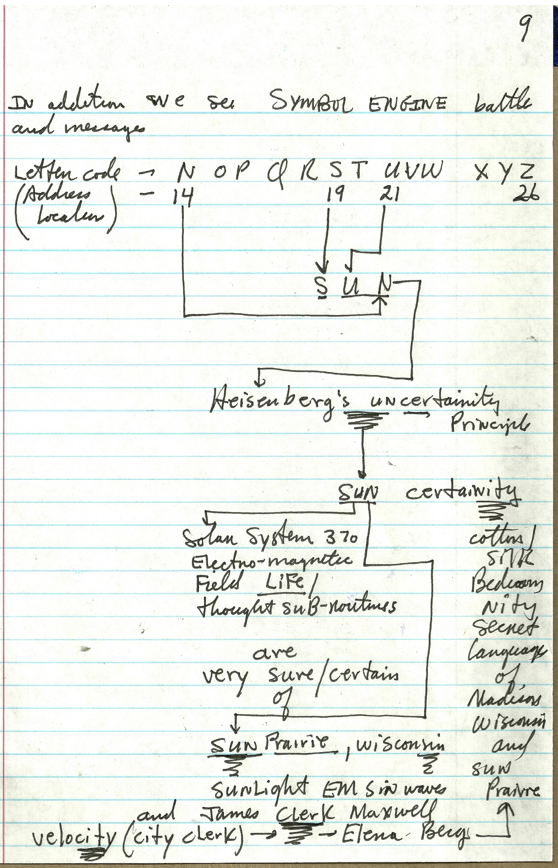 9
In addition we see SYMBOL ENGINE battle
and messages
Letter code → N O P Q R S T U V W X Y Z
(Address Location) – 14 19 21 26
S U N
Heisenberg's uncertainity
Principle
SUN certainity
Solar System 370
Electro-magnetic
Field LIFE/
thought SUB-routines
are
very sure/certain
of
SUN Prairie, Wisconsin
SunLight EM Sin waves
and James Clerk Maxwell
velocity (city clerk) → → Elena Berg
cotton/
Silk
Bedroom
Nity
Secret
Language
of
Madison
Wisconsin
and
sun
Prairie